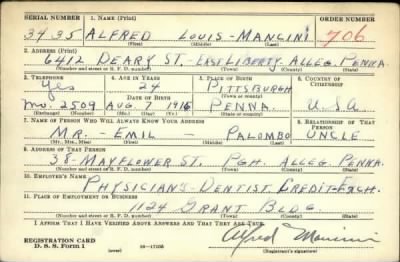 SERIAL NUMBER 1. NAME (Print) ORDER NUMBER
3435 ALFRED LOUIS - MANCINI 706
(First) (Middle) (Last)
2. ADDRESS (Print)
6412 DEARY ST. - EAST LIBERTY - ALLEG. PENNA.
(Number and street or R. F. D. number) (Town) (County) (State)
3. TELEPHONE 4. AGE IN YEARS 5. PLACE OF BIRTH 6. COUNTRY OF CITIZENSHIP
Yes 24 PITTSBURGH
DATE OF BIRTH (Town or county)
MO. 2509 AUG. 7 1916 PENNA. U.S.A
(Exchange) (Number) (Mo.) (Day) (Yr.) (State or country)
7. NAME OF PERSON WHO WILL ALWAYS KNOW YOUR ADDRESS 8. RELATIONSHIP OF THAT PERSON
MR. - EMIL - PALOMBO UNCLE
(Mr., Mrs., Miss) (First) (Middle) (Last)
9. ADDRESS OF THAT PERSON
38 - MAYFLOWER ST. PGH. ALLEG. PENNA.
(Number and street or R. F. D. number) (Town) (County) (State)
10. EMPLOYER'S NAME
PHYSICIANS - DENTIST CREDIT - EXCH.
11. PLACE OF EMPLOYMENT OR BUSINESS
1124 GRANT BLDG
(Number and street or R. F. D. number) (Town) (County) (State)
I AFFIRM THAT I HAVE VERIFIED ABOVE ANSWERS AND THAT THEY ARE TRUE.
REGISTRATION CARD
D. S. S. Form 1 (over) 16-17105 Alfred Mancini
(Registrant's signature)